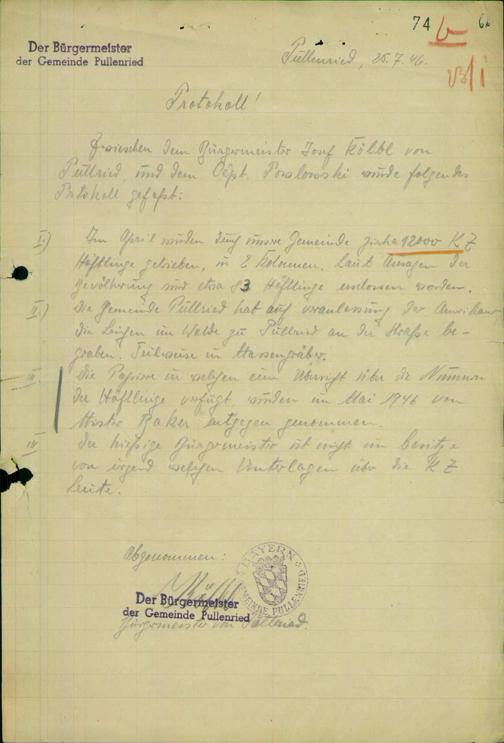 74 6
Der Bürgermeister
der Gemeinde Pullenried
Pullenried, 25.7.46.
Protokoll!
Zwischen dem Bürgermeister Josef Kölbl von
Pullried, und dem Dept. Powlowski wurde folgendes
Protokoll gefaßt:
I.) Im April wurden durch unsere Gemeinde zirka 12000 KZ
Häftlinge getrieben, in 2 Kolonnen. Laut Aussagen der
Bevölkerung sind etwa 83 Häftlinge erschossen worden.
II.) Die Gemeinde Pullried hat auf veranlassung der Amerikaner
die Leichen im Walde zu Pullried an der Straße be-
graben. Teilweise in Massengräber.
III Die Papiere in welchen eine Übersicht über die Nummern
der Häftlinge verfügt, wurden im Mai 1946 von
Mister Baker entgegen genommen.
IV Der hiesige Bürgermeister ist nicht im besitze
von irgend welchen Unterlagen über die KZ
Leute.
Abgenommen:
Kölbl
Der Bürgermeister
der Gemeinde Pullenried
Bürgermeister von Pullenried.
BAYERN
GEMEINDE PULLENRIED